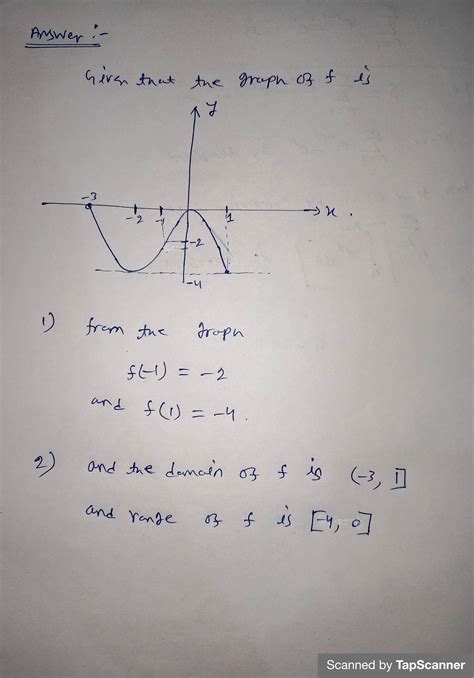 Answer :-
Given that the graph of f is
y
-3
-2 -1 1 x .
-2
-4
1) from the graph
f(-1) = -2
and f(1) = -4 .
2) and the domain of f is (-3, 1]
and range of f is [-4, 0]
Scanned by TapScanner